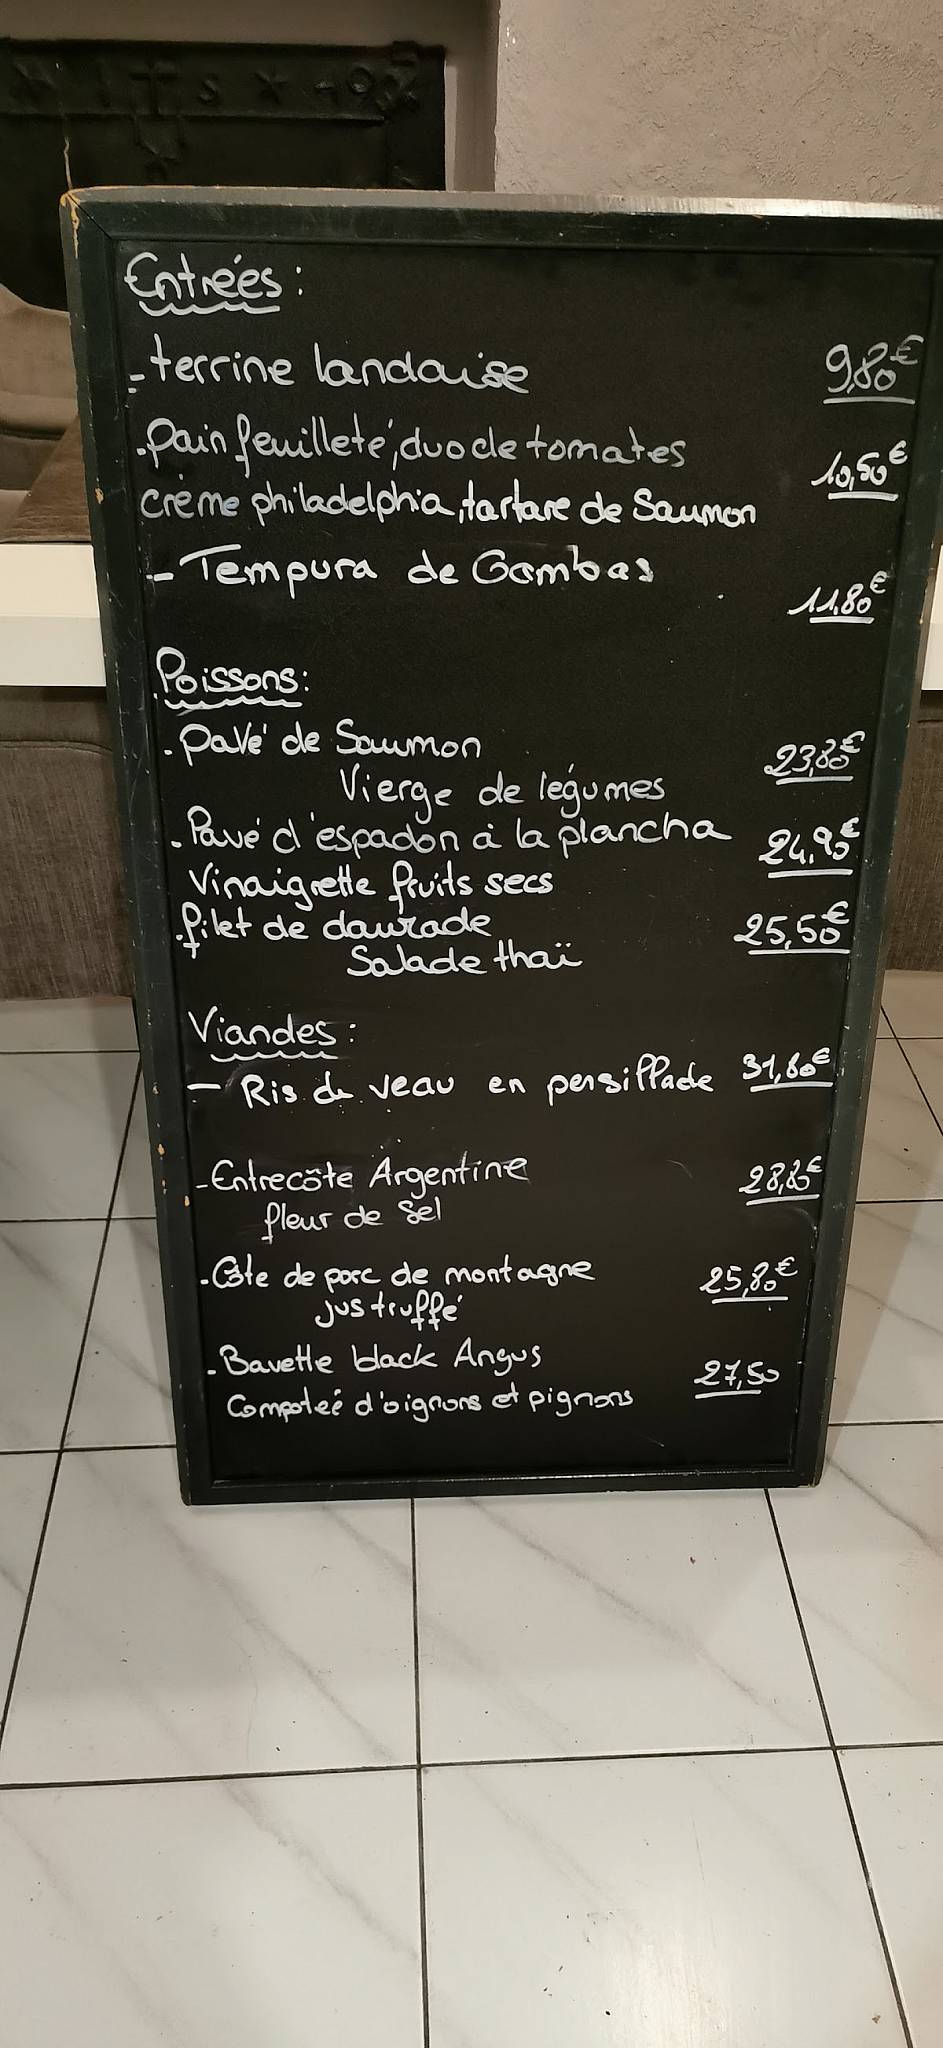 Entrées :
- terrine landaise 9,80€
. Pain feuilleté, duo de tomates
crème philadelphia, tartare de Saumon 10,50€
- Tempura de Gambas
11,80€
Poissons :
. Pavé de Saumon 23,80€
Vierge de légumes
. Pavé d'espadon à la plancha 24,90€
Vinaigrette fruits secs
. filet de daurade 25,50€
Salade thaï
Viandes :
- Ris de veau en persillade 31,80€
- Entrecôte Argentine 28,80€
fleur de Sel
. Côte de porc de montagne 25,80€
jus truffé
. Bavette black Angus 27,50
Compoteé d'oignons et pignons